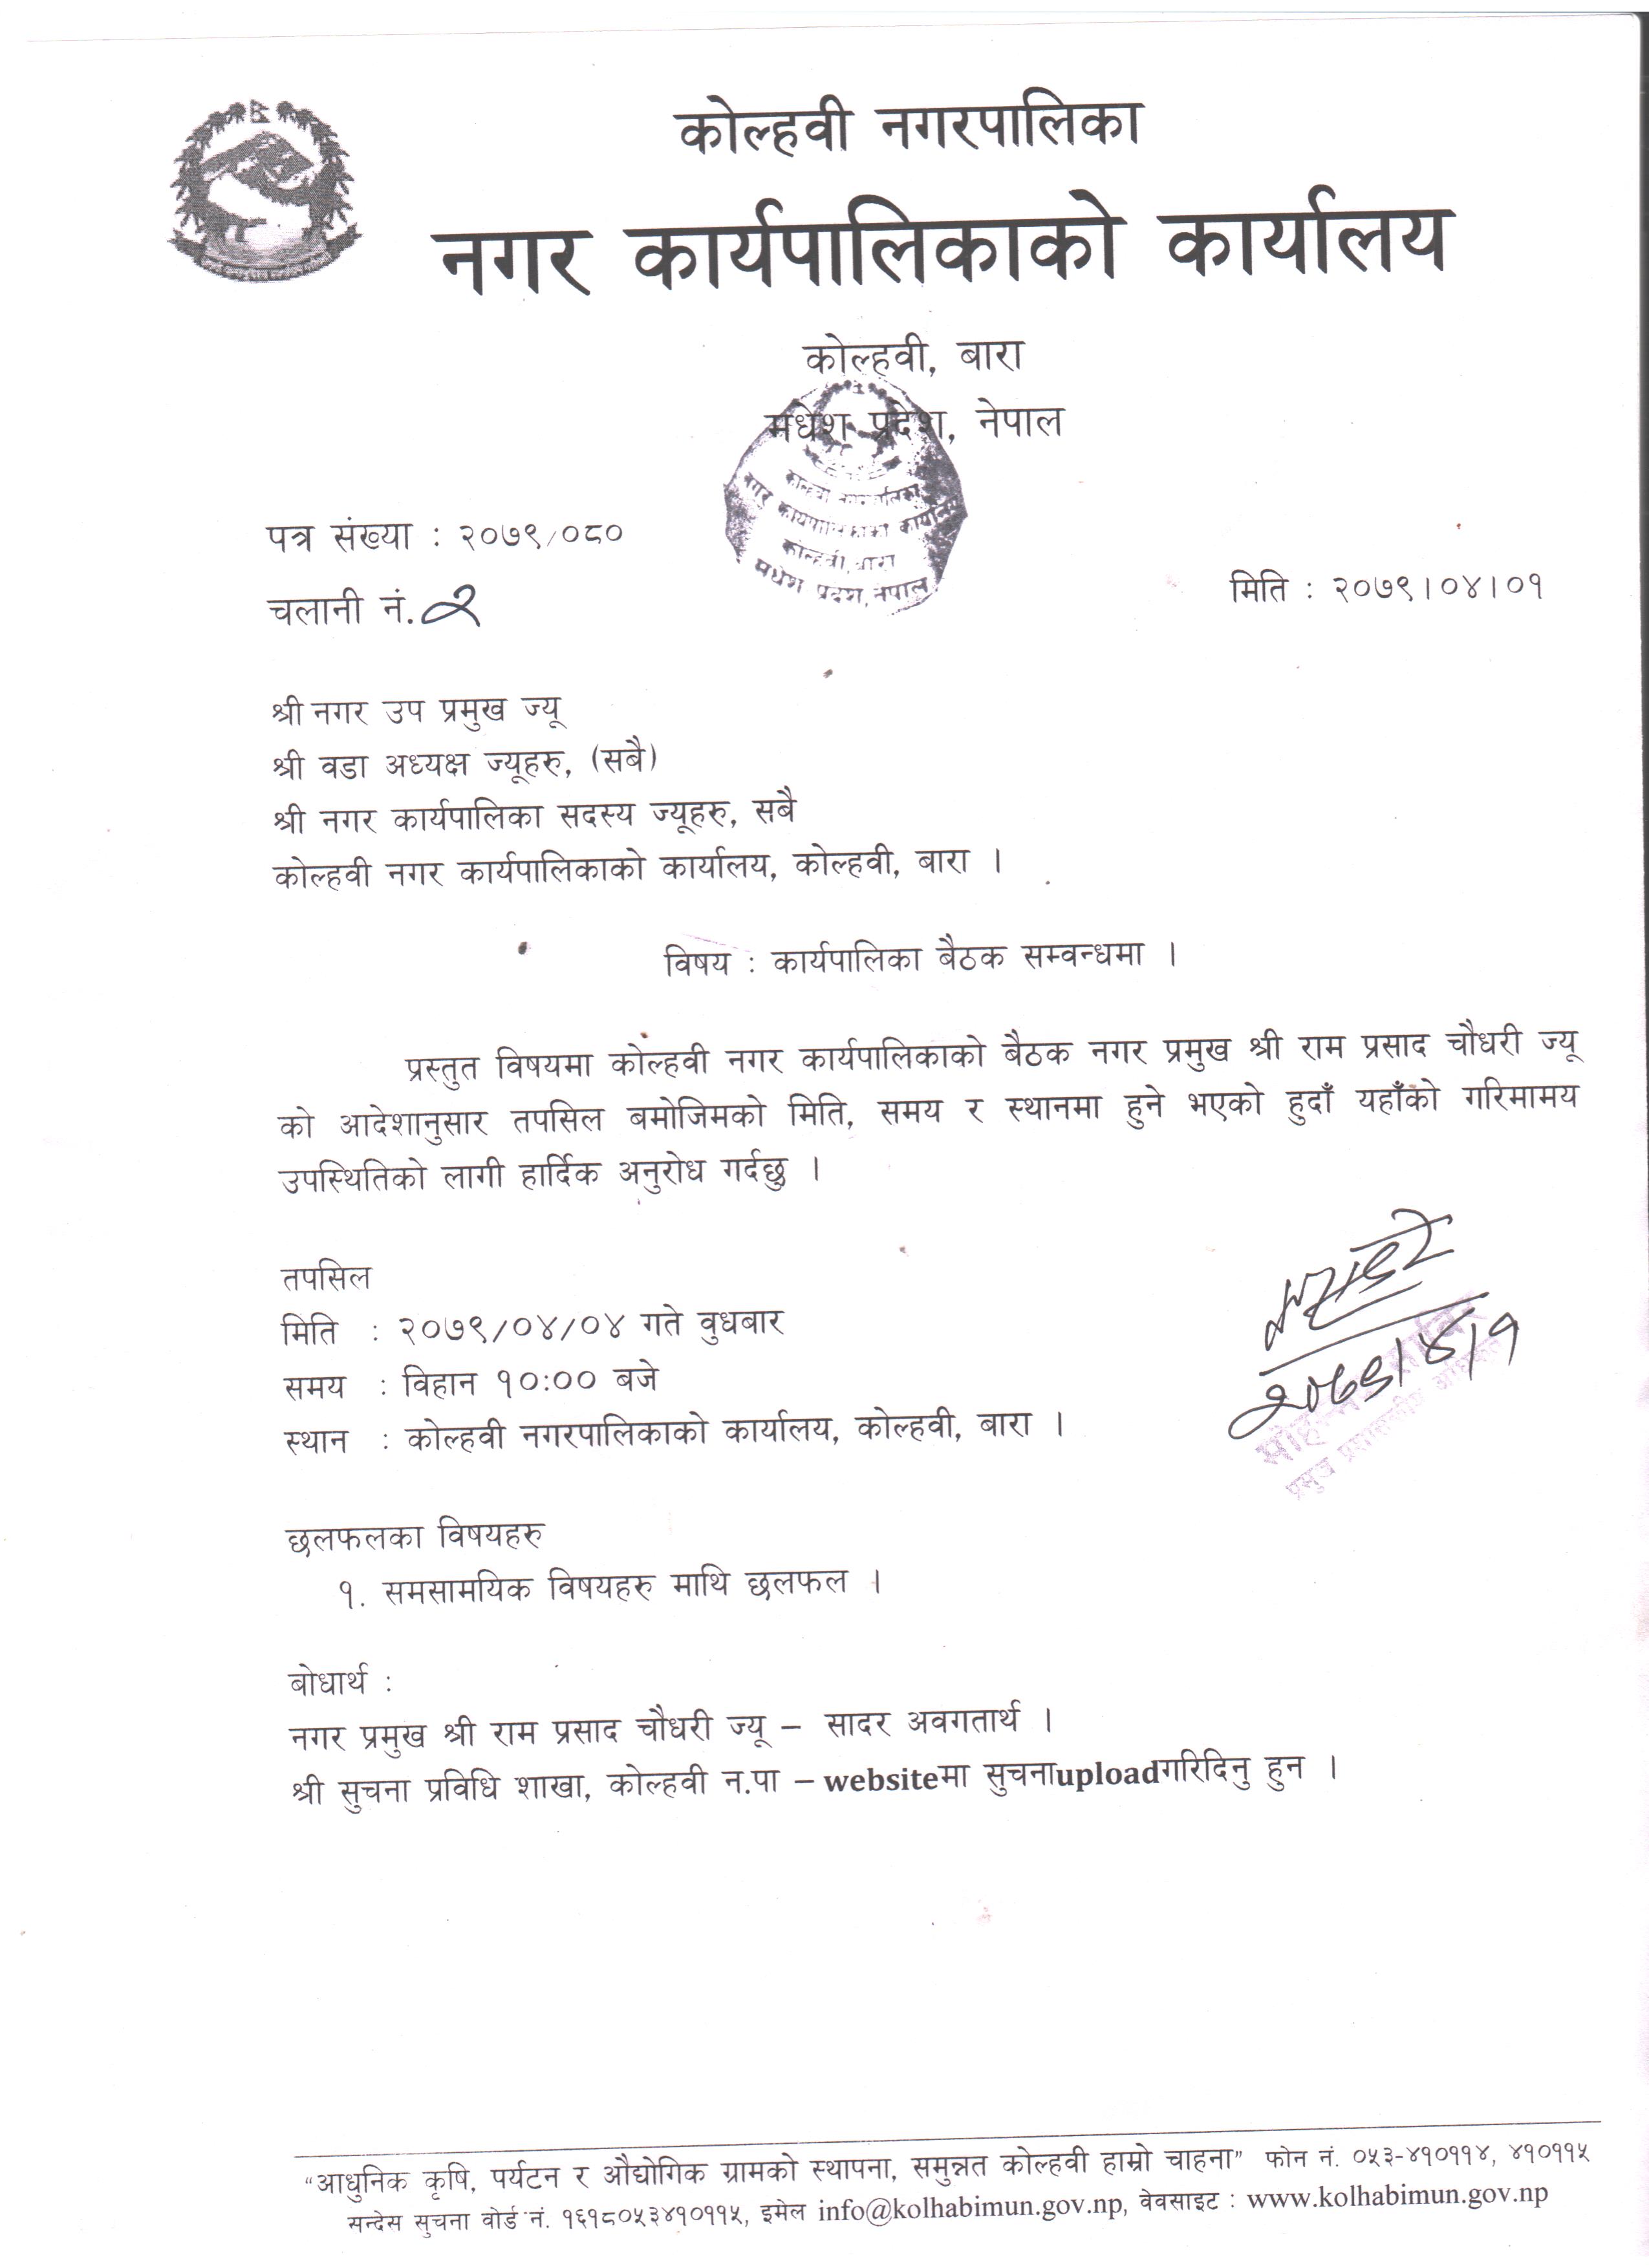 कोल्हवी नगरपालिका
नगर कार्यपालिकाको कार्यालय
कोल्हवी, बारा
मधेश प्रदेश, नेपाल
कोल्हवी नगरपालिका
नगर कार्यपालिकाको कार्यालय
कोल्हवी, बारा
मधेश प्रदेश, नेपाल
पत्र संख्या : २०७९/०८०
चलानी नं. २
मिति : २०७९।०४।०१
श्री नगर उप प्रमुख ज्यू
श्री वडा अध्यक्ष ज्यूहरु, (सबै)
श्री नगर कार्यपालिका सदस्य ज्यूहरु, सबै
कोल्हवी नगर कार्यपालिकाको कार्यालय, कोल्हवी, बारा ।
विषय : कार्यपालिका बैठक सम्वन्धमा ।
प्रस्तुत विषयमा कोल्हवी नगर कार्यपालिकाको बैठक नगर प्रमुख श्री राम प्रसाद चौधरी ज्यू
को आदेशानुसार तपसिल बमोजिमको मिति, समय र स्थानमा हुने भएको हुदाँ यहाँको गरिमामय
उपस्थितिको लागी हार्दिक अनुरोध गर्दछु ।
तपसिल
मिति : २०७९/०४/०४ गते वुधबार
समय : विहान १०:०० बजे
स्थान : कोल्हवी नगरपालिकाको कार्यालय, कोल्हवी, बारा ।
२०७९।४।१
प्रमुख प्रशासकीय अधिकृत
छलफलका विषयहरु
१. समसामयिक विषयहरु माथि छलफल ।
बोधार्थ :
नगर प्रमुख श्री राम प्रसाद चौधरी ज्यू – सादर अवगतार्थ ।
श्री सुचना प्रविधि शाखा, कोल्हवी न.पा – websiteमा सुचनाuploadगरिदिनु हुन ।
“आधुनिक कृषि, पर्यटन र औद्योगिक ग्रामको स्थापना, समुन्नत कोल्हवी हाम्रो चाहना” फोन नं. ०५३-४१०११४, ४१०११५
सन्देस सुचना वोर्ड नं. १६१८०५३४१०११५, इमेल info@kolhabimun.gov.np, वेवसाइट : www.kolhabimun.gov.np